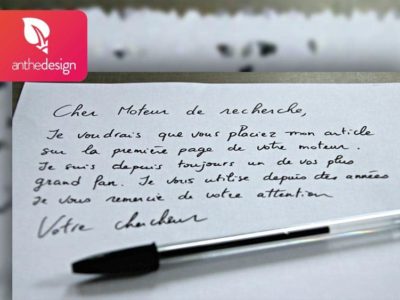 anthedesign
Cher Moteur de recherche,
Je voudrais que vous placiez mon article
sur la première page de votre moteur.
Je suis depuis toujours un de vos plus
grand fan. Je vous utilise depuis des années
Je vous remercie de votre attention
Votre chercheur